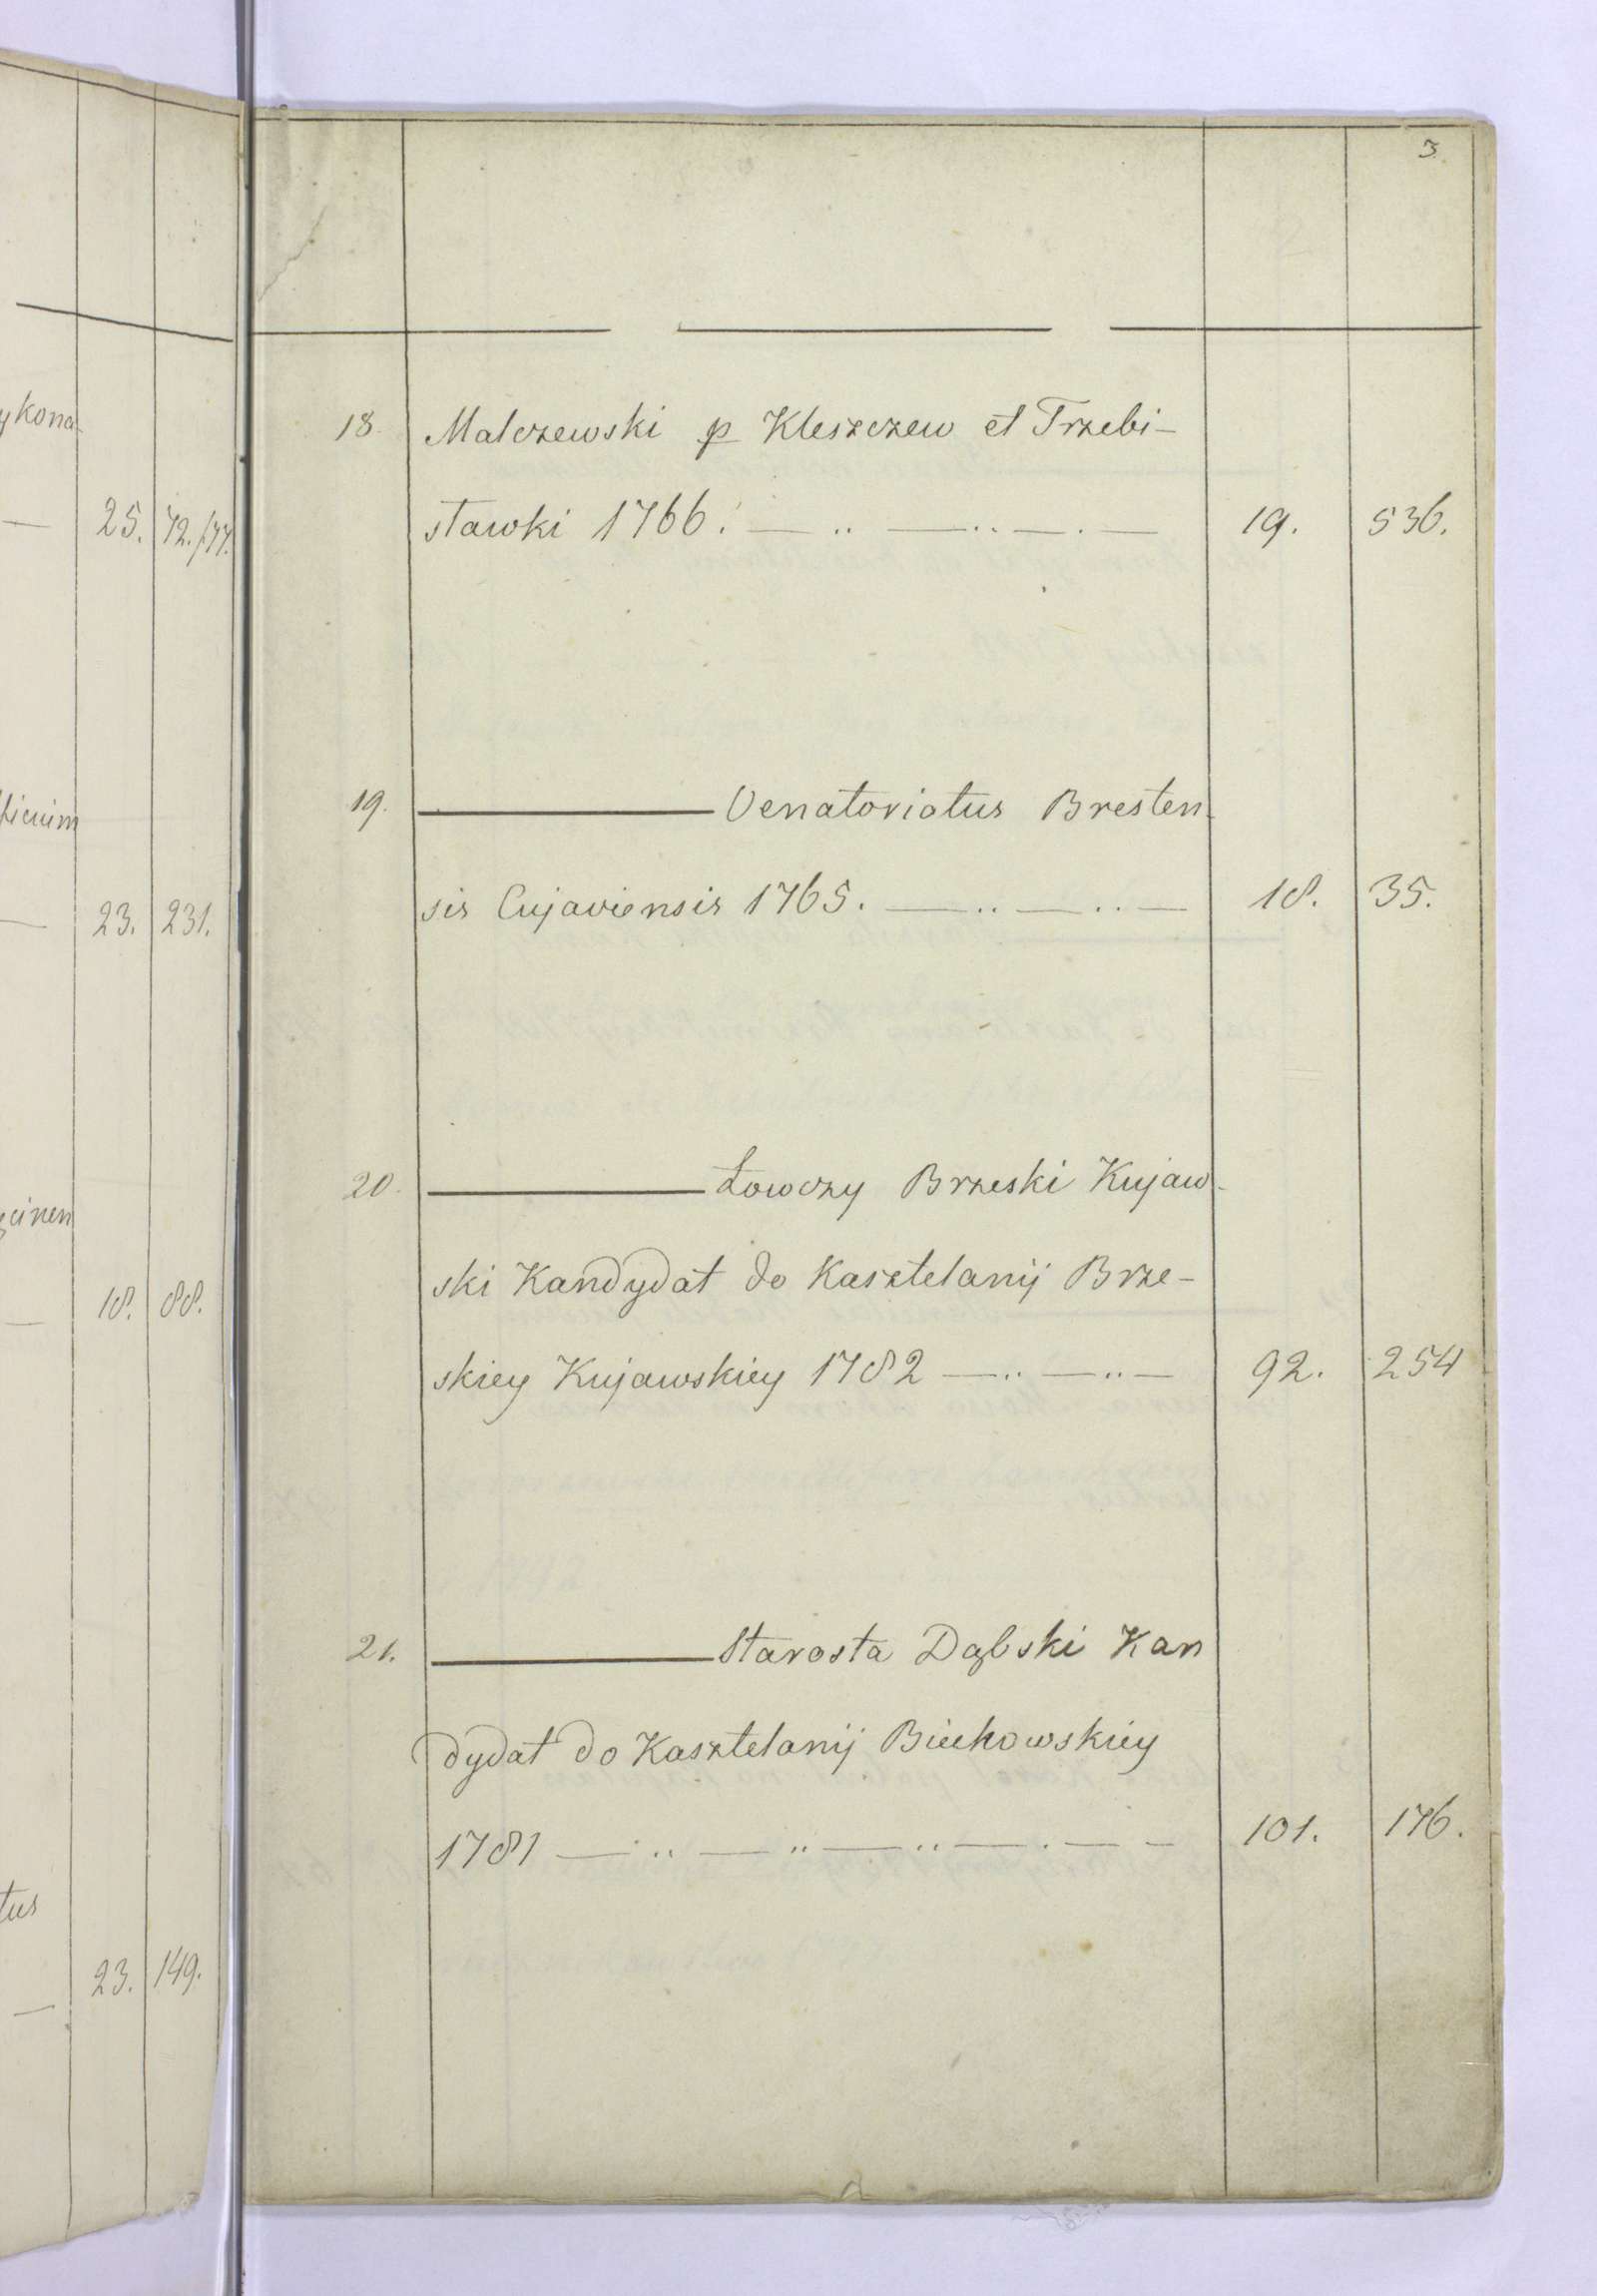 3
ykona-
25. 72./77.
23. 231.
18. 88.
tus
23. 149.
18. Malczewski p Kleszczew et Trzebi-
stawki 1766. 19. 536.
19. Venatoriatus Bresten-
sis Cujaviensis 1765. 18. 35.
20. Łowczy Brzeski Kujaw-
ski Kandydat do Kasztelanij Brze-
skiey Kujawskiey 1782 92. 254
21. Starosta Dąbski Kan
dydat do Kasztelanij Biechowskiey
1781 101. 176.